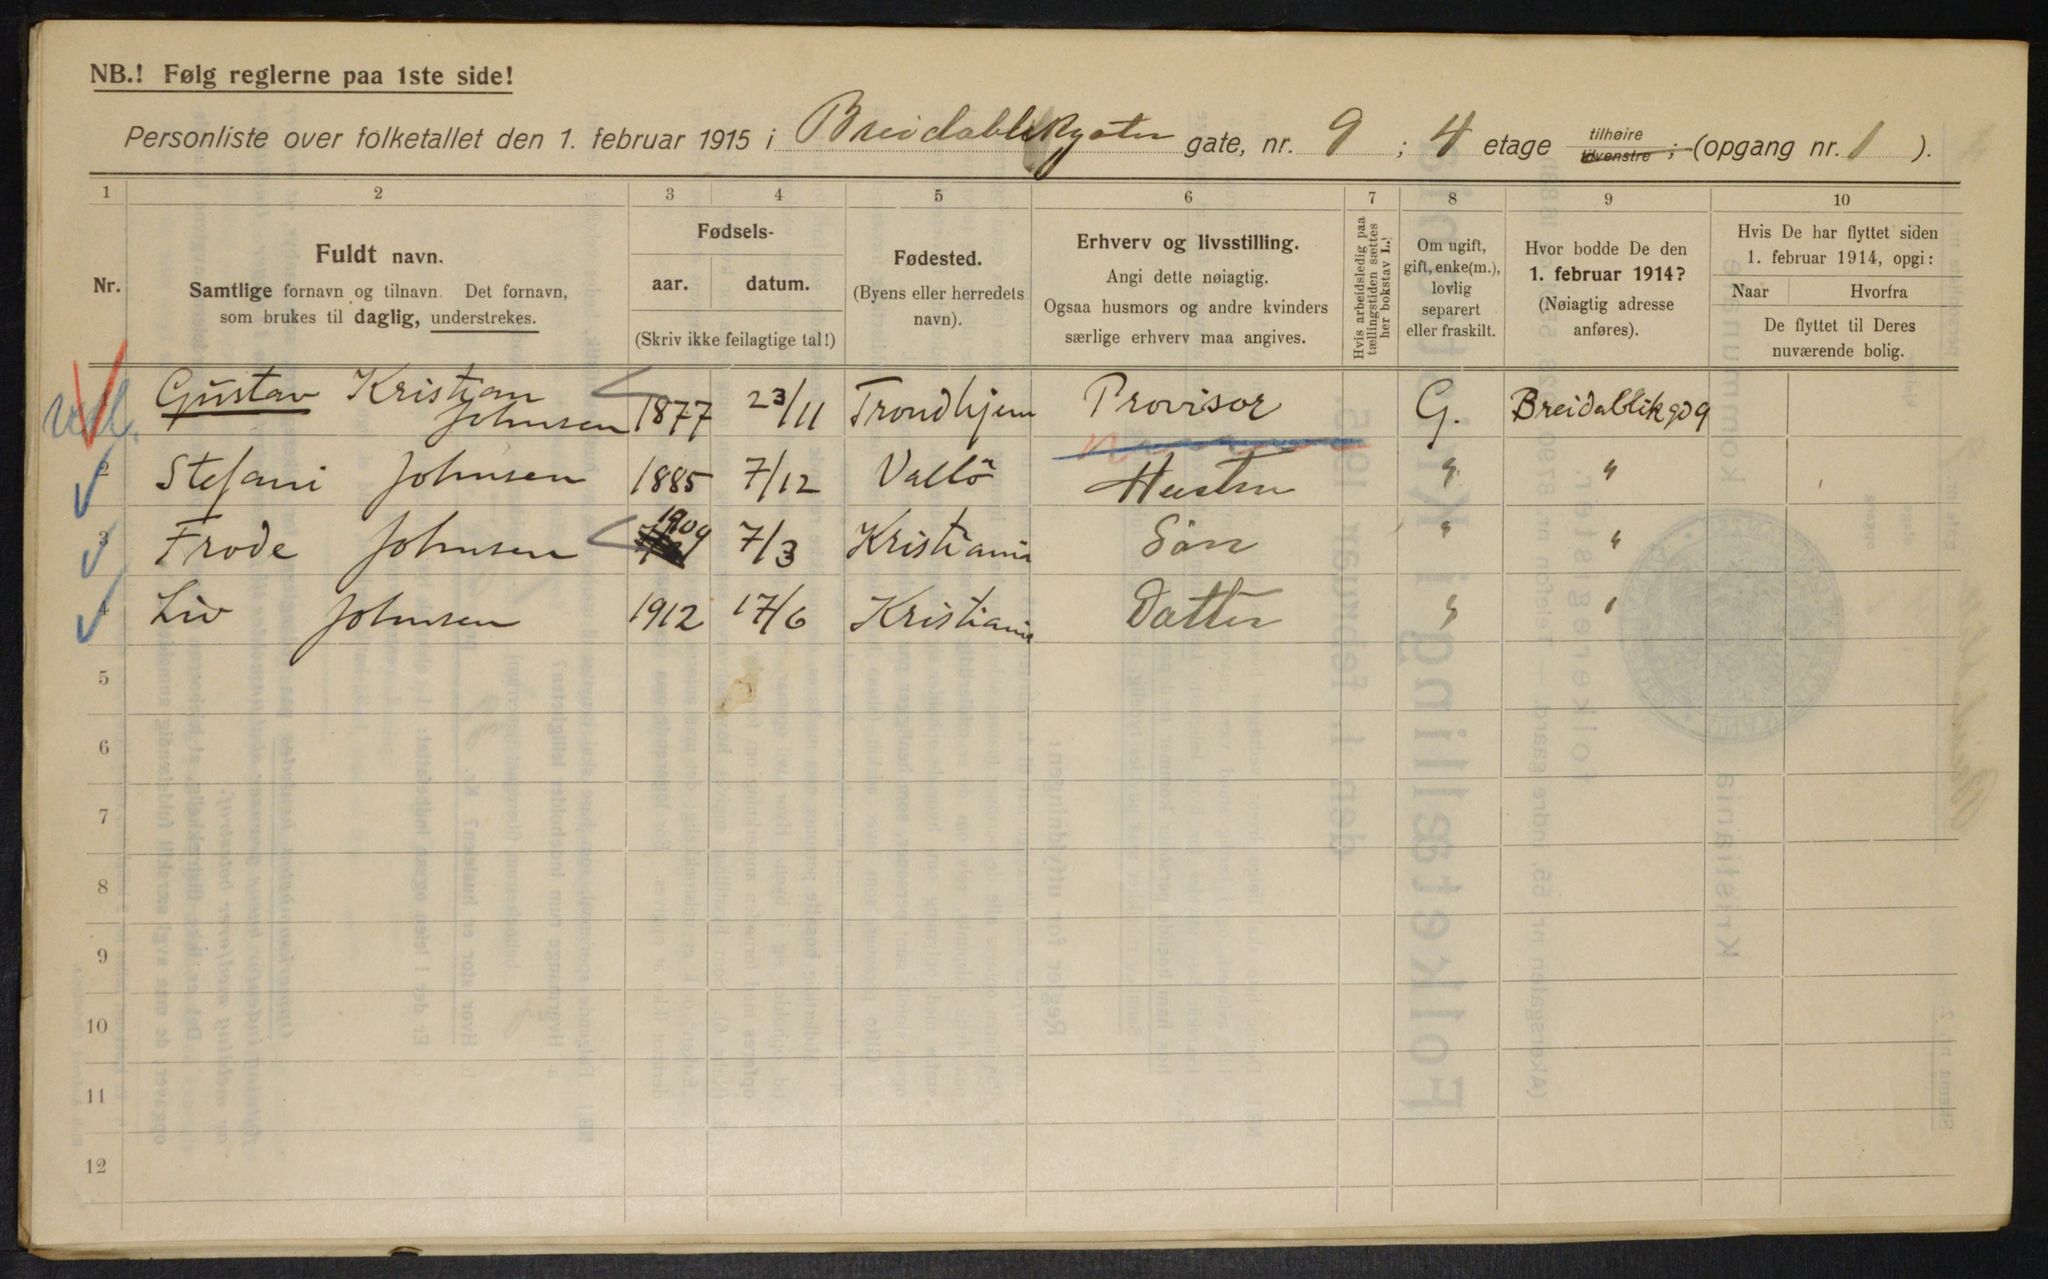 NB.! Følg reglerne paa 1ste side!
Personliste over folketallet den 1. februar 1915 i Breidablikgaten gate, nr. 9; 4 etage tilhøire tilvenstre; (opgang nr. 1).
1 2 3 4 5 6 7 8 9 10
Nr.
Fuldt navn.
Samtlige fornavn og tilnavn. Det fornavn,
som brukes til daglig, understrekes.
Fødsels-
aar. datum.
(Skriv ikke feilagtige tal!)
Fødested.
(Byens eller herredets
navn).
Erhverv og livsstilling.
Angi dette nøiagtig.
Ogsaa husmors og andre kvinders
særlige erhverv maa angives.
Hvis arbeidsledig paa
tællingstiden sættes
her bokstav L.!
Om ugift,
gift, enke(m.),
lovlig
separert
eller fraskilt.
Hvor bodde De den
1. februar 1914?
(Nøiagtig adresse
anføres).
Hvis De har flyttet siden
1. februar 1914, opgi:
Naar Hvorfra
De flyttet til Deres
nuværende bolig.
Gustav Kristian Johnsen 1877 23/11 Trondhjem Provisor G. Breidablikgd 9
2 Stefani Johnsen 1885 7/12 Vallö Hustru " "
3 Frode Johnsen 1909 7/3 Kristiania Sön " "
4 Liv Johnsen 1912 17/6 Kristiania Datter " "
5
6
7
8
9
10
11
12